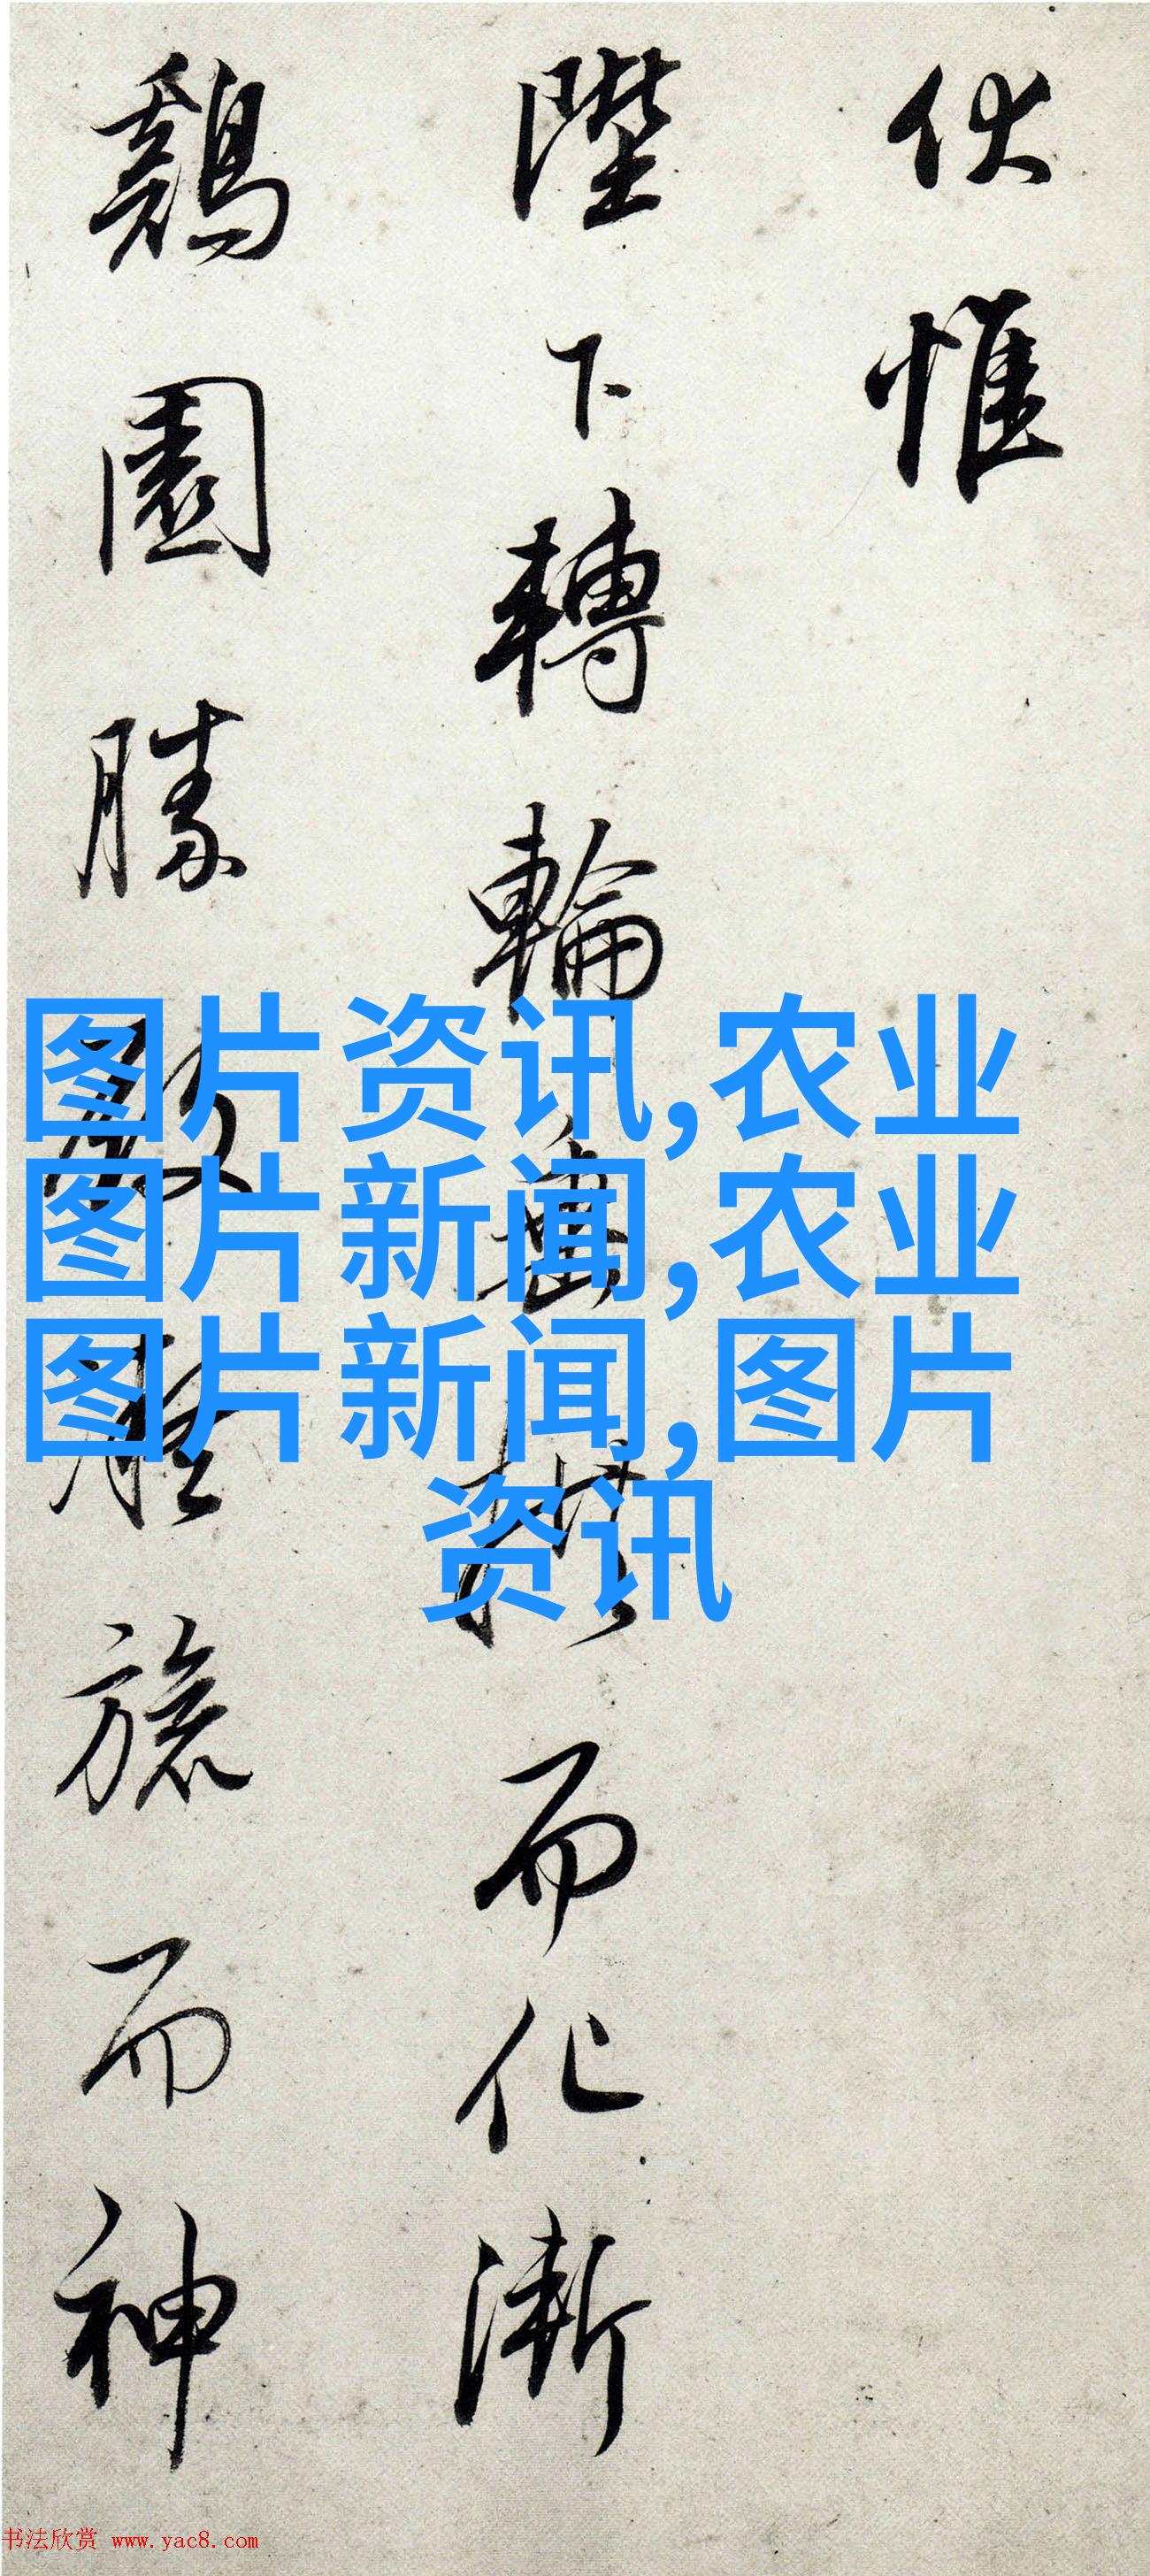 伏惟
陛下轉輪垂拱而化漸
鷄園勝旒而神
图片资讯,农业
图片新闻,农业
图片新闻,图片
资讯
书法欣赏 www.yac8.com